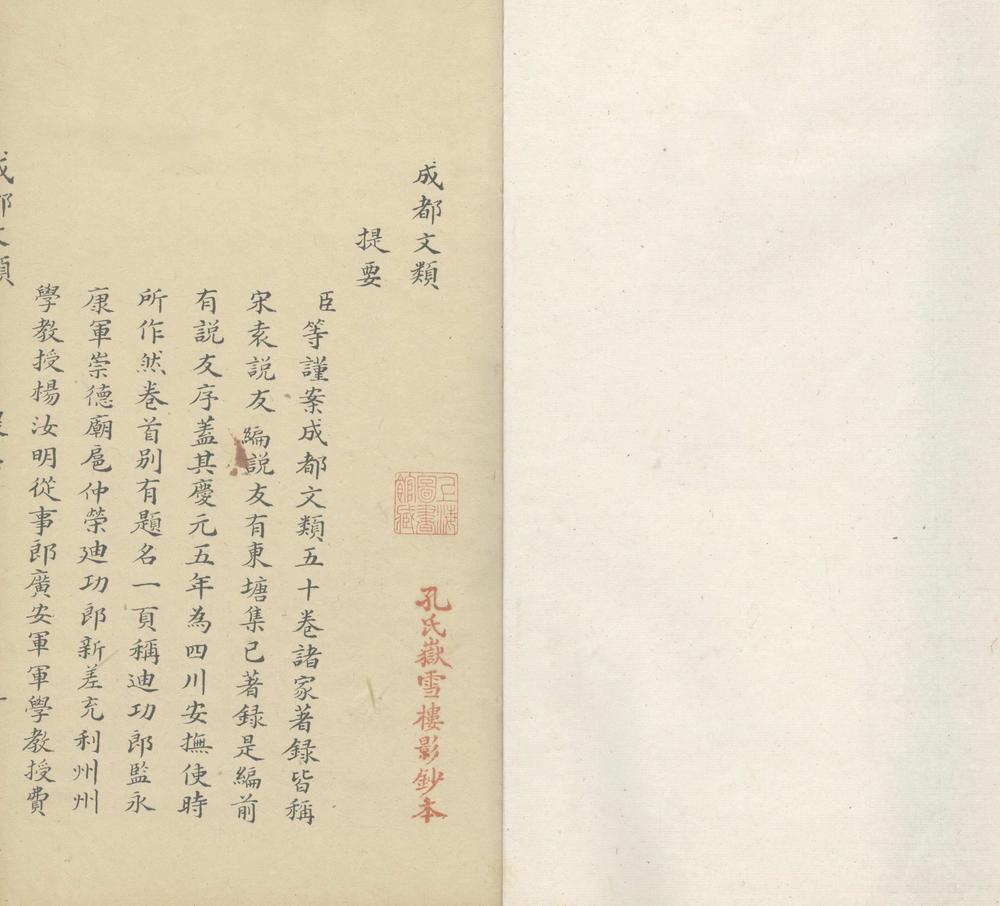 成都文類
提要
臣等謹案成都文類五十卷諸家著録皆稱
宋袁説友編説友有東塘集已著録是編前
有説友序蓋其慶元五年為四川安撫使時
所作然卷首别有題名一頁稱迪功郎監永
康軍崇德廟扈仲榮廸功郎新差充利州州
學教授楊汝明從事郎廣安軍軍學教授費
成都文類
上海圖書館藏
孔氏嶽雪樓影鈔本